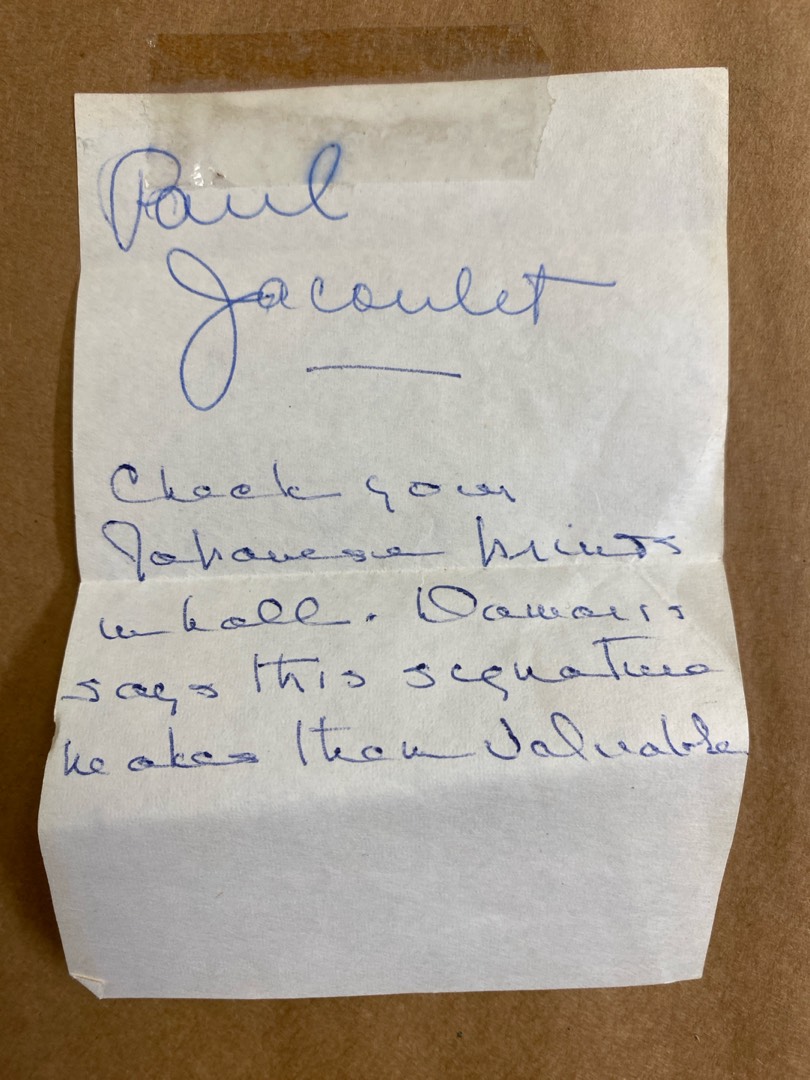 Paul
Jacoulet
Check your
Japanese prints
in hall. Damaris
says this signature
makes them valuable